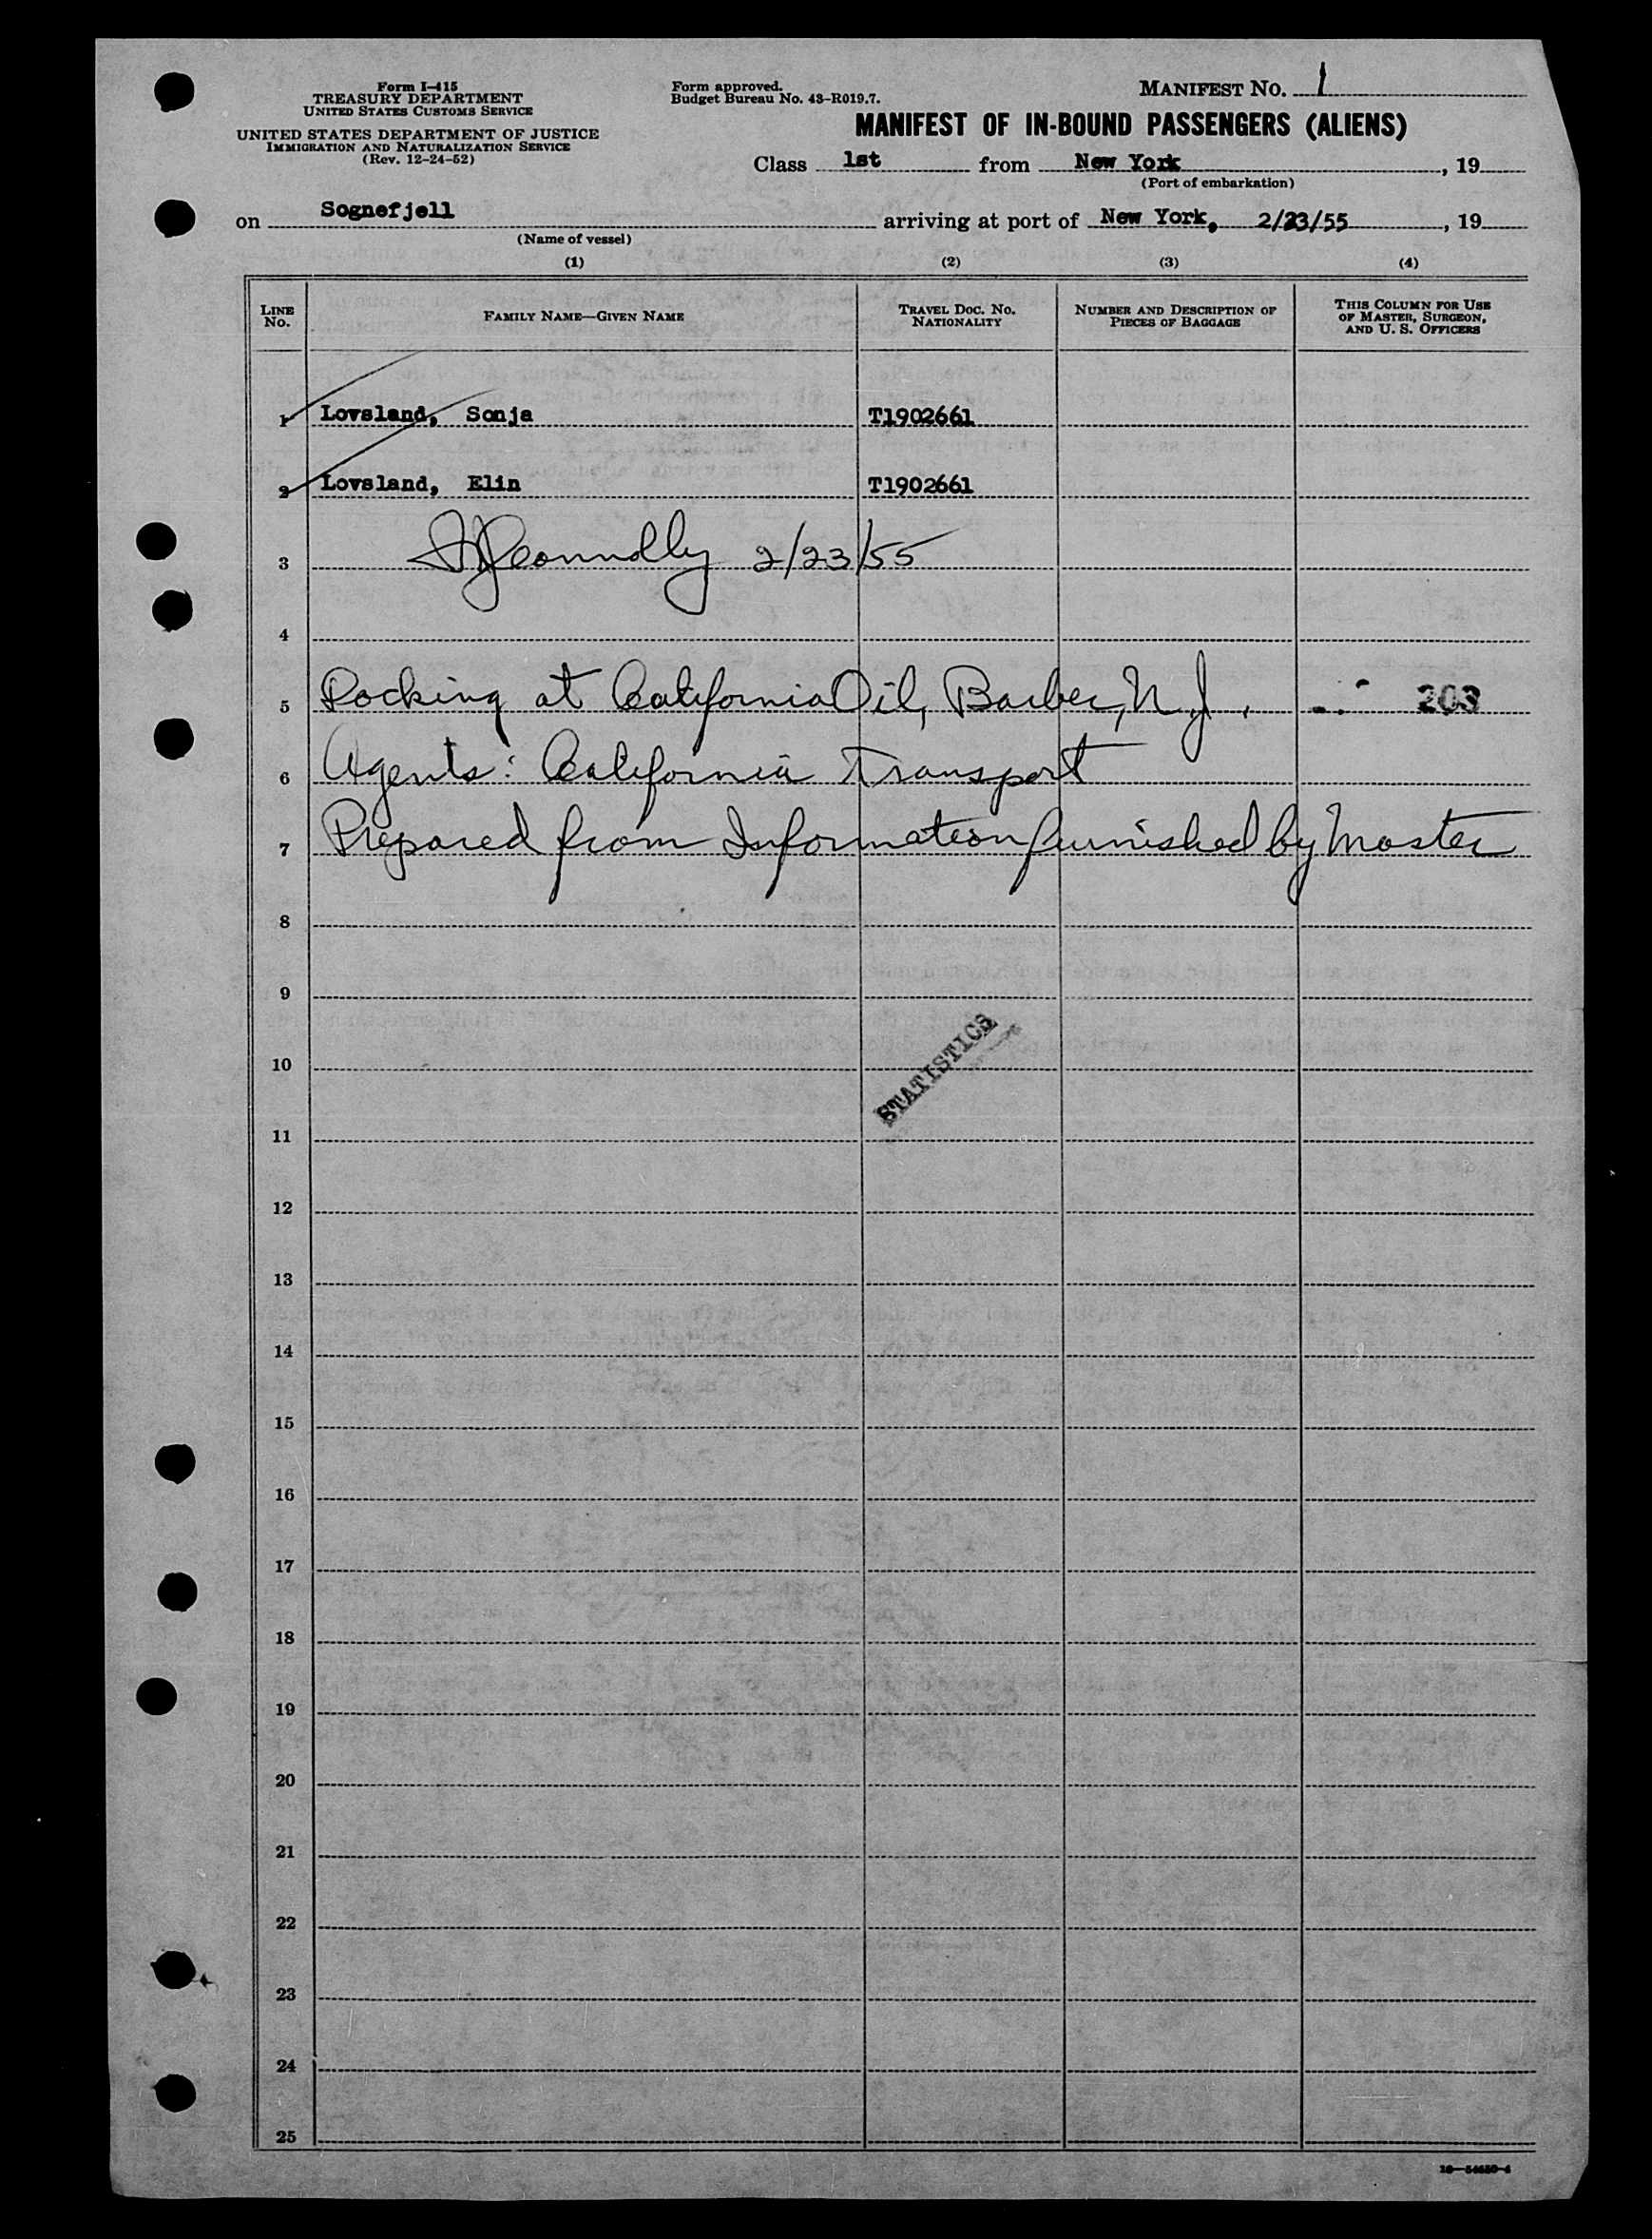 Form I-415
TREASURY DEPARTMENT
UNITED STATES CUSTOMS SERVICE
UNITED STATES DEPARTMENT OF JUSTICE
IMMIGRATION AND NATURALIZATION SERVICE
(Rev. 12-24-52)
Form approved.
Budget Bureau No. 43-R019.7.
MANIFEST NO. 1
MANIFEST OF IN-BOUND PASSENGERS (ALIENS)
Class 1st from New York, 19
(Port of embarkation)
on Sognefjell arriving at port of New York, 2/23/55, 19
(Name of vessel)
(1) (2) (3) (4)
LINE NO. FAMILY NAME—GIVEN NAME TRAVEL DOC. NO. NATIONALITY NUMBER AND DESCRIPTION OF PIECES OF BAGGAGE THIS COLUMN FOR USE OF MASTER, SURGEON, AND U. S. OFFICERS
1 Lovsland, Sonja T1902661
2 Lovsland, Elin T1902661
3 Connolly 2/23/55
4
5 Docking at California Oil, Barber, N.J. 203
6 Agents: California Transport
7 Prepared from Information furnished by Master
8
9
STATISTICS
10
11
12
13
14
15
16
17
18
19
20
21
22
23
24
25